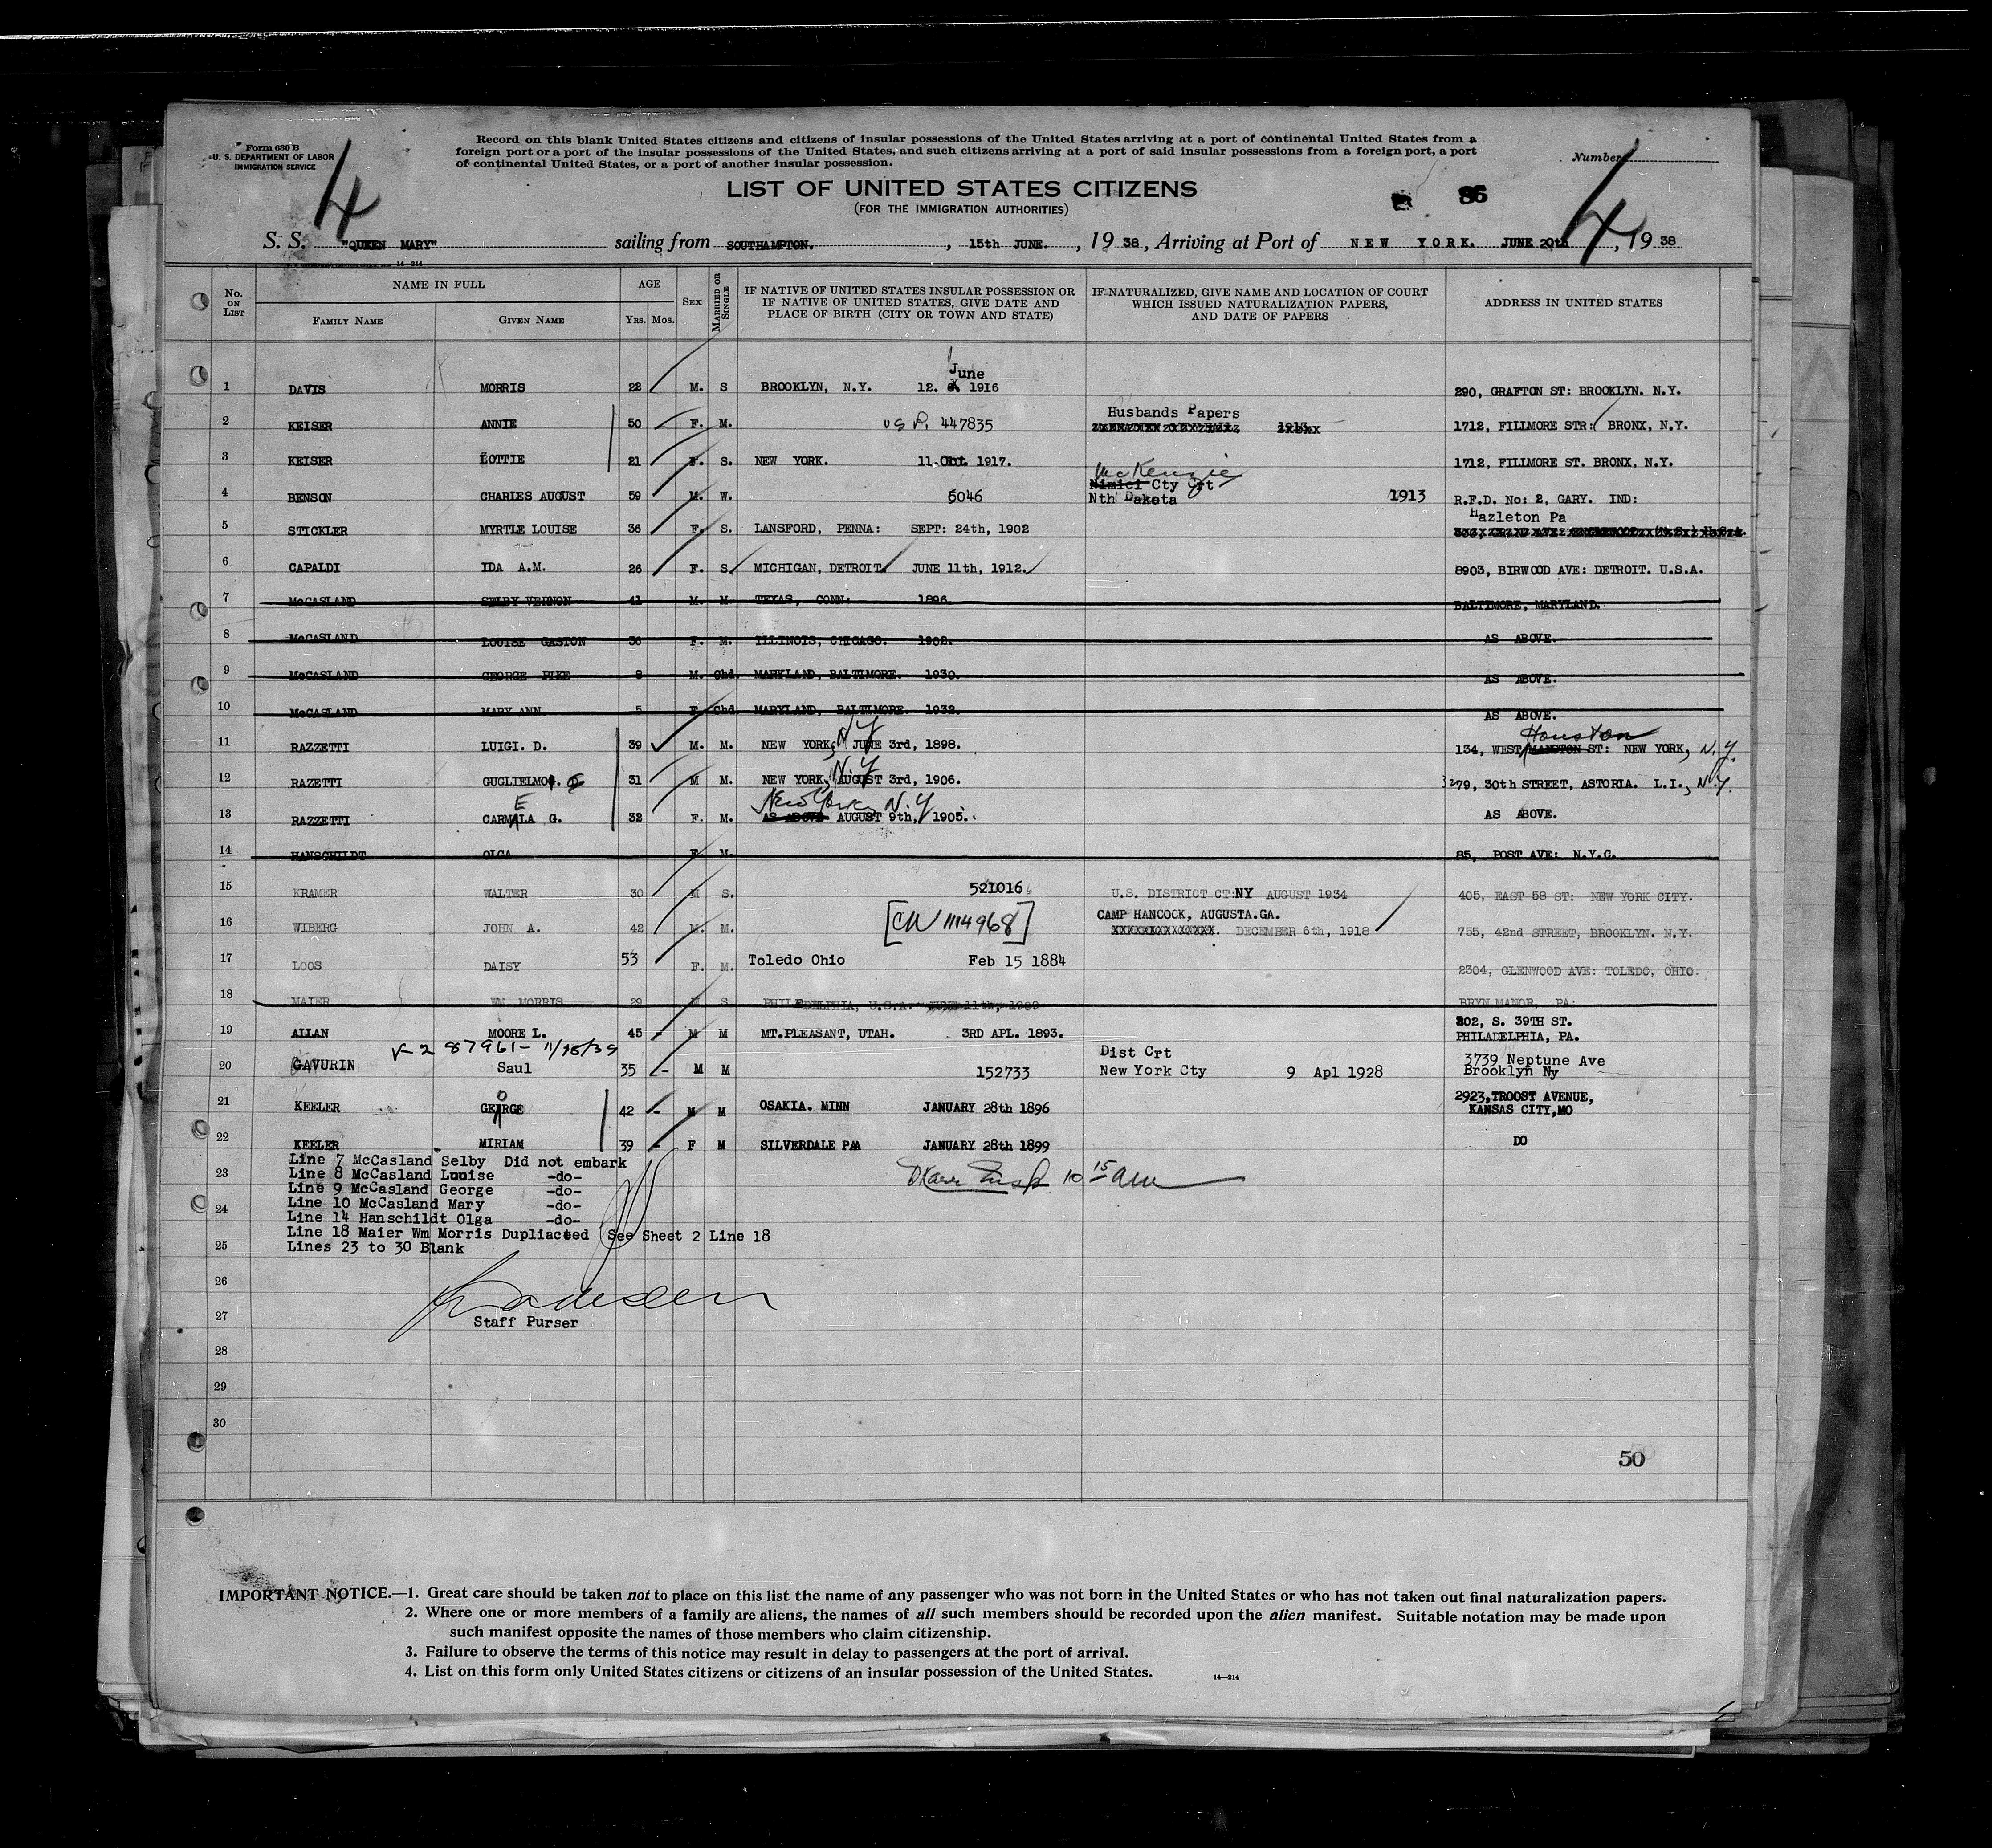 Form 630 B
U. S. DEPARTMENT OF LABOR
IMMIGRATION SERVICE
4
Record on this blank United States citizens and citizens of insular possessions of the United States arriving at a port of continental United States from a
foreign port or a port of the insular possessions of the United States, and such citizens arriving at a port of said insular possessions from a foreign port, a port
of continental United States, or a port of another insular possession.
Number
LIST OF UNITED STATES CITIZENS
(FOR THE IMMIGRATION AUTHORITIES)
86
4
S. S. "QUEEN MARY" sailing from SOUTHAMPTON. , 15th JUNE. , 19 38 , Arriving at Port of NEW YORK. JUNE 20th , 19 38
14-214
No. ON LIST NAME IN FULL FAMILY NAME GIVEN NAME AGE YRS. MOS. SEX MARRIED OR SINGLE
IF NATIVE OF UNITED STATES INSULAR POSSESSION OR IF NATIVE OF UNITED STATES, GIVE DATE AND PLACE OF BIRTH (CITY OR TOWN AND STATE)
IF NATURALIZED, GIVE NAME AND LOCATION OF COURT WHICH ISSUED NATURALIZATION PAPERS, AND DATE OF PAPERS
ADDRESS IN UNITED STATES
June
1 DAVIS MORRIS 22 M. S BROOKLYN, N.Y. 12. 1916 290, GRAFTON ST: BROOKLYN. N.Y.
Husbands Papers
2 KEISER ANNIE 50 F. M. 447835 1913 1712, FILLMORE STR: BRONX, N.Y.
3 KEISER LOTTIE 21 F. S. NEW YORK. 11 Oct. 1917. 1712, FILLMORE ST. BRONX, N.Y.
McKenzie
Cty Crt
4 BENSON CHARLES AUGUST 59 M. W. 6046 Nth Dakota 1913 R.F.D. No: 2, GARY. IND:
Hazleton Pa
5 STICKLER MYRTLE LOUISE 36 F. S. LANSFORD, PENNA: SEPT: 24th, 1902
6 CAPALDI IDA A.M. 26 F. S. MICHIGAN, DETROIT. JUNE 11th, 1912. 8903, BIRWOOD AVE: DETROIT. U.S.A.
7 McCASLAND SELBY VERNON 41 M. M TEXAS, CONN: 1896 BALTIMORE, MARYLAND.
8 McCASLAND LOUISE GASTON 36 F. M. ILLINOIS, CHICAGO. 1902. AS ABOVE.
9 McCASLAND GEORGE PIKE 8 M. Chd. MARYLAND, BALTIMORE. 1930. AS ABOVE.
10 McCASLAND MARY ANN 5 F Chd MARYLAND, BALTIMORE. 1932. AS ABOVE.
Houston
11 RAZZETTI LUIGI. D. 39 M. M. NEW YORK, N.Y JUNE 3rd, 1898. 134, WEST ST: NEW YORK, N.Y.
12 RAZETTI GUGLIELMO 31 M M. NEW YORK, N.Y AUGUST 3rd, 1906. 3279, 30th STREET, ASTORIA. L.I., N.Y.
E New York, N.Y
13 RAZZETTI CARMALA G. 32 F. M. AS ABOVE AUGUST 9th, 1905. AS ABOVE.
14 HANSCHILDT OLGA F M. 85, POST AVE: N.Y.C.
15 KRAMER WALTER 30 M S. 521016 U.S. DISTRICT CT:NY AUGUST 1934 405, EAST 58 ST: NEW YORK CITY.
CAMP HANCOCK, AUGUSTA.GA.
16 WIBERG JOHN A. 42 M. M. [CN 1114968] XXXXXXXXXXXXXX. DECEMBER 6th, 1918 755, 42nd STREET, BROOKLYN. N.Y.
17 LOOS DAISY 53 F. M. Toledo Ohio Feb 15 1884 2304, GLENWOOD AVE: TOLEDO, OHIO.
18 MAIER WM MORRIS 29 M S. PHILEDELPHIA, U.S.A. JUNE 11th, 1909 BRYN MANOR, PA:
302, S. 39TH ST.
19 ALLAN MOORE L. 45 M M MT.PLEASANT, UTAH. 3RD APL. 1893. PHILADELPHIA, PA.
V-2 87961-
Dist Crt 3739 Neptune Ave
20 GAVURIN Saul 35 M M 152733 New York Cty 9 Apl 1928 Brooklyn Ny
2923,TROOST AVENUE,
21 KEELER GEORGE 42 M M OSAKIA. MINN JANUARY 28th 1896 KANSAS CITY,MO
22 KEELER MIRIAM 39 F M SILVERDALE PA JANUARY 28th 1899 DO
Line 7 McCasland Selby Did not embark
23 Line 8 McCasland Louise -do-
Line 9 McCasland George -do-
24 Line 10 McCasland Mary -do-
Line 14 Hanschildt Olga -do-
Line 18 Maier Wm Morris Dupliacted (See Sheet 2 Line 18
25 Lines 23 to 30 Blank
10 15 am
26
27 Staff Purser
28
29
30
50
IMPORTANT NOTICE.—1. Great care should be taken not to place on this list the name of any passenger who was not born in the United States or who has not taken out final naturalization papers.
2. Where one or more members of a family are aliens, the names of all such members should be recorded upon the alien manifest. Suitable notation may be made upon
such manifest opposite the names of those members who claim citizenship.
3. Failure to observe the terms of this notice may result in delay to passengers at the port of arrival.
4. List on this form only United States citizens or citizens of an insular possession of the United States.
14—214